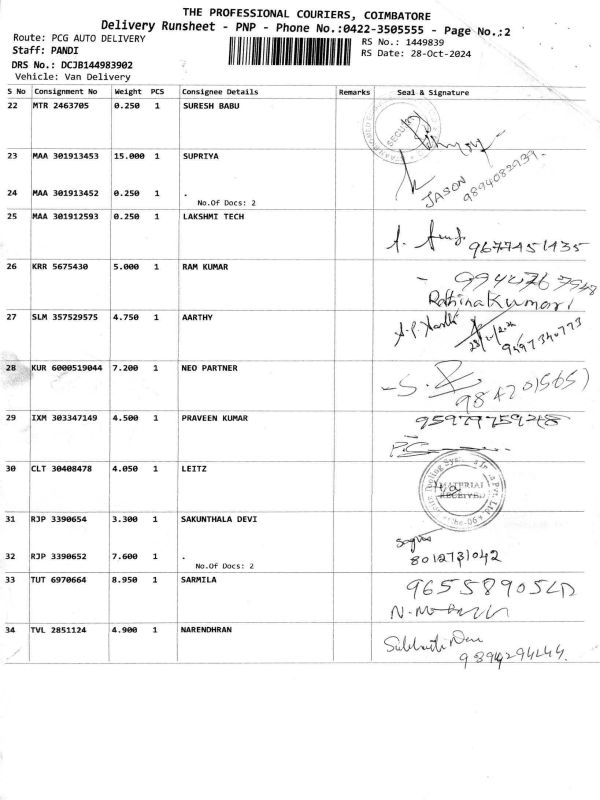 THE PROFESSIONAL COURIERS, COIMBATORE
Delivery Runsheet - PNP - Phone No.:0422-3505555 - Page No.:2
Route: PCG AUTO DELIVERY
RS No.: 1449839
Staff: PANDI
RS Date: 28-Oct-2024
DRS No.: DCJB144983902
Vehicle: Van Delivery
S No Consignment No Weight PCS Consignee Details Remarks Seal & Signature
22 MTR 2463705 0.250 1 SURESH BABU
SECURITY
23 MAA 301913453 15.000 1 SUPRIYA
JASON
9894082939
24 MAA 301913452 0.250 1 .
No.Of Docs: 2
25 MAA 301912593 0.250 1 LAKSHMI TECH
9677451435
26 KRR 5675430 5.000 1 RAM KUMAR
Rathinakumari
27 SLM 357529575 4.750 1 AARTHY
28 KUR 6000519044 7.200 1 NEO PARTNER
29 IXM 303347149 4.500 1 PRAVEEN KUMAR
30 CLT 30408478 4.050 1 LEITZ
MATERIAL
RECEIVED
31 RJP 3390654 3.300 1 SAKUNTHALA DEVI
32 RJP 3390652 7.600 1 .
8012731042
No.Of Docs: 2
33 TUT 6970664 8.950 1 SARMILA
34 TVL 2851124 4.900 1 NARENDHRAN